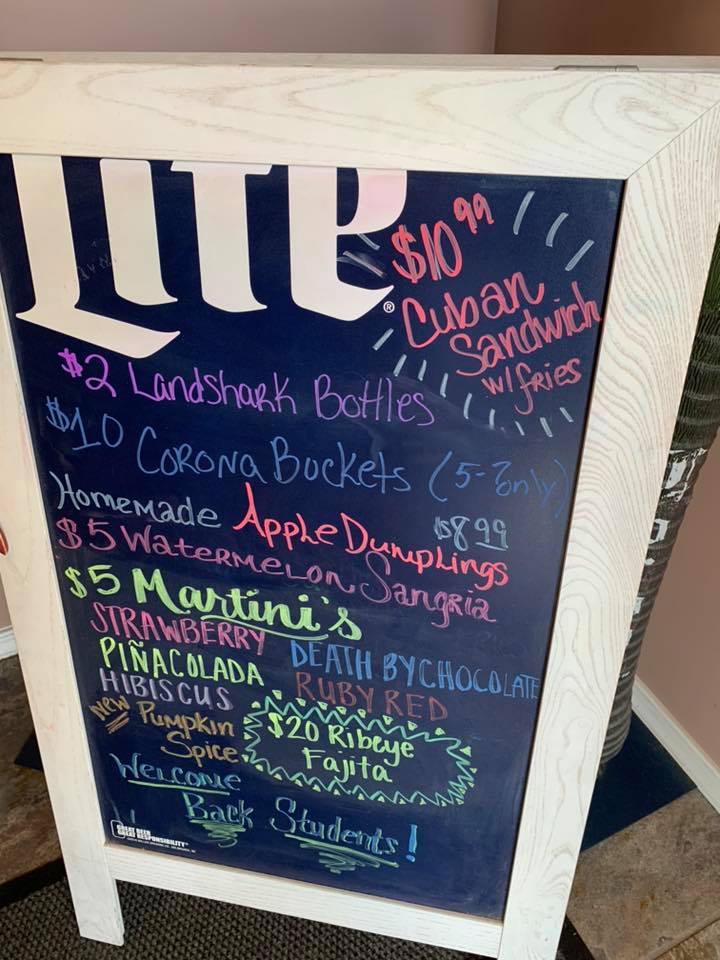 Lite®
$10.99
Cuban
Sandwich
w/ fries
$2 Landshark Bottles
$10 Corona Buckets (5-7only)
Homemade Apple Dumplings $8.99
$5 Watermelon Sangria
$5 Martini's
STRAWBERRY
DEATH BY CHOCOLATE
PIÑACOLADA
RUBY RED
HIBISCUS
NEW Pumpkin
Spice
$20 Ribeye
Fajita
Welcome
Back Students!
GREAT BEER
GREAT RESPONSIBILITY™